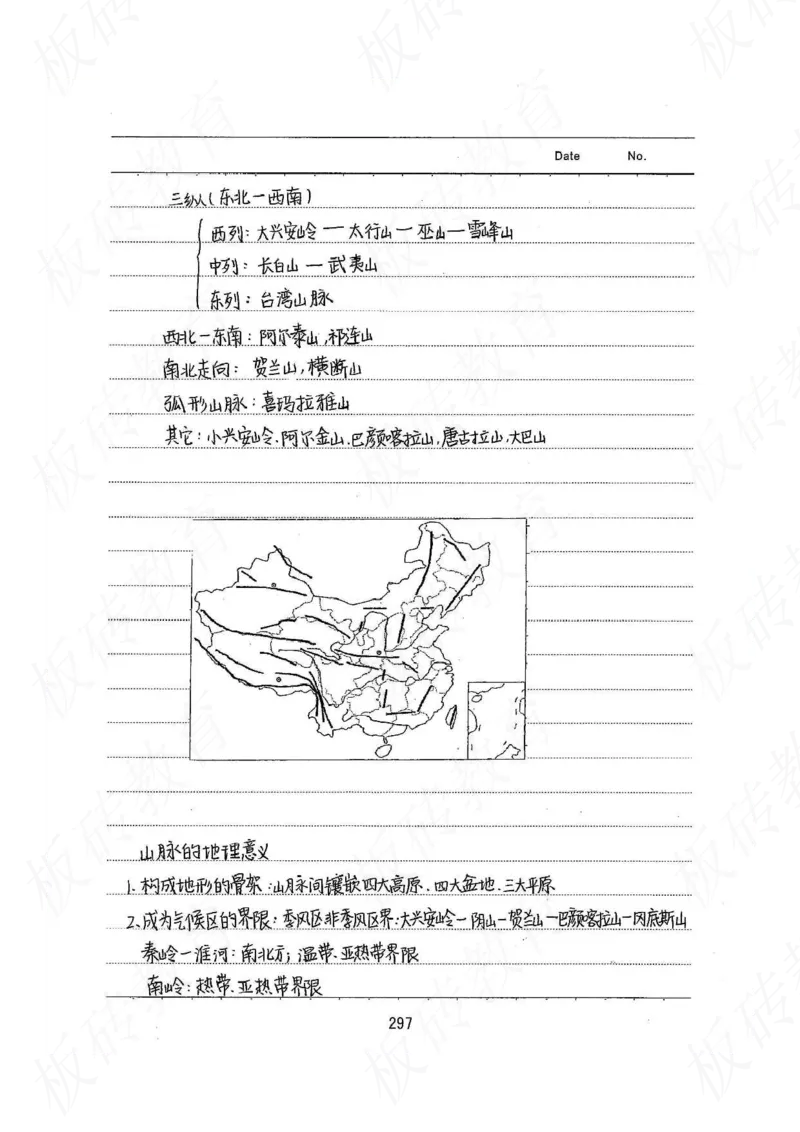 Date No.
三纵(东北—西南)
西列:大兴安岭—太行山—巫山—雪峰山
中列:长白山—武夷山
东列:台湾山脉
西北—东南:阿尔泰山,祁连山
南北走向:贺兰山,横断山
弧形山脉:喜玛拉雅山
其它:小兴安岭.阿尔金山.巴颜喀拉山,唐古拉山,大巴山
山脉的地理意义
1.构成地形的骨架:山脉间镶嵌四大高原.四大盆地.三大平原
2、成为气候区的界限:季风区非季风区界:大兴安岭—阴山—贺兰山—巴颜喀拉山—冈底斯山
秦岭—淮河:南北方;温带.亚热带界限
南岭:热带.亚热带界限
297
板砖教育